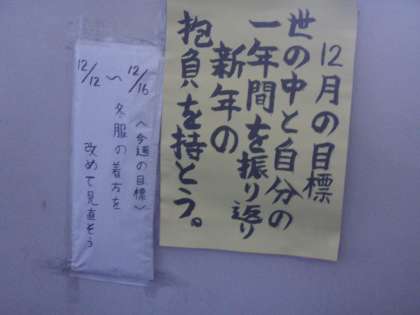 12月の目標
世の中と自分の
一年間を振り返り
新年の
抱負を持とう。
12/12 〜 12/16
〈今週の目標〉
冬服の着方を
改めて見直そう